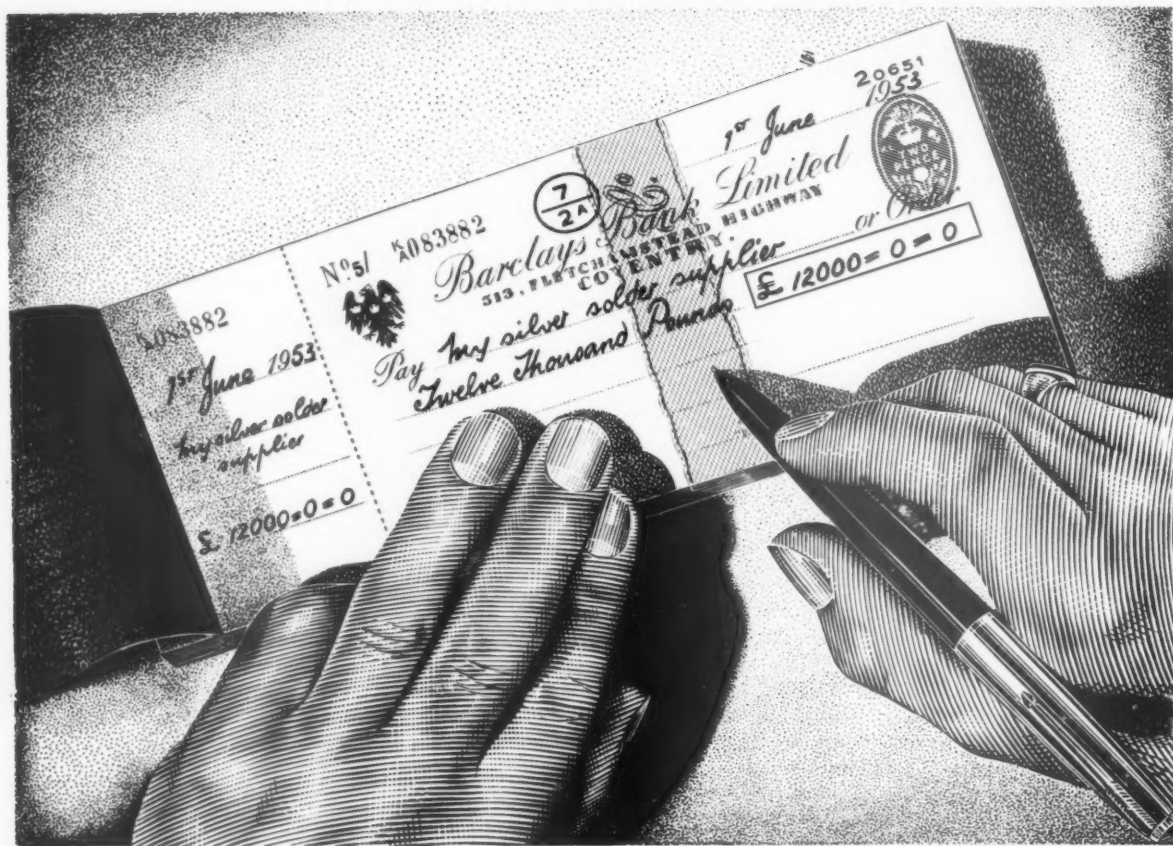 K/A083882
1st June 1953
my silver solder
supplier
£ 12000=0=0
No 51/ K/A083882
7/2A
20651
1st June 1953
Barclays Bank Limited
313, FLETCHAMSTEAD HIGHWAY
COVENTRY
TWO
PENCE
Pay my silver solder supplier or Order
Twelve Thousand Pounds
£ 12000=0=0